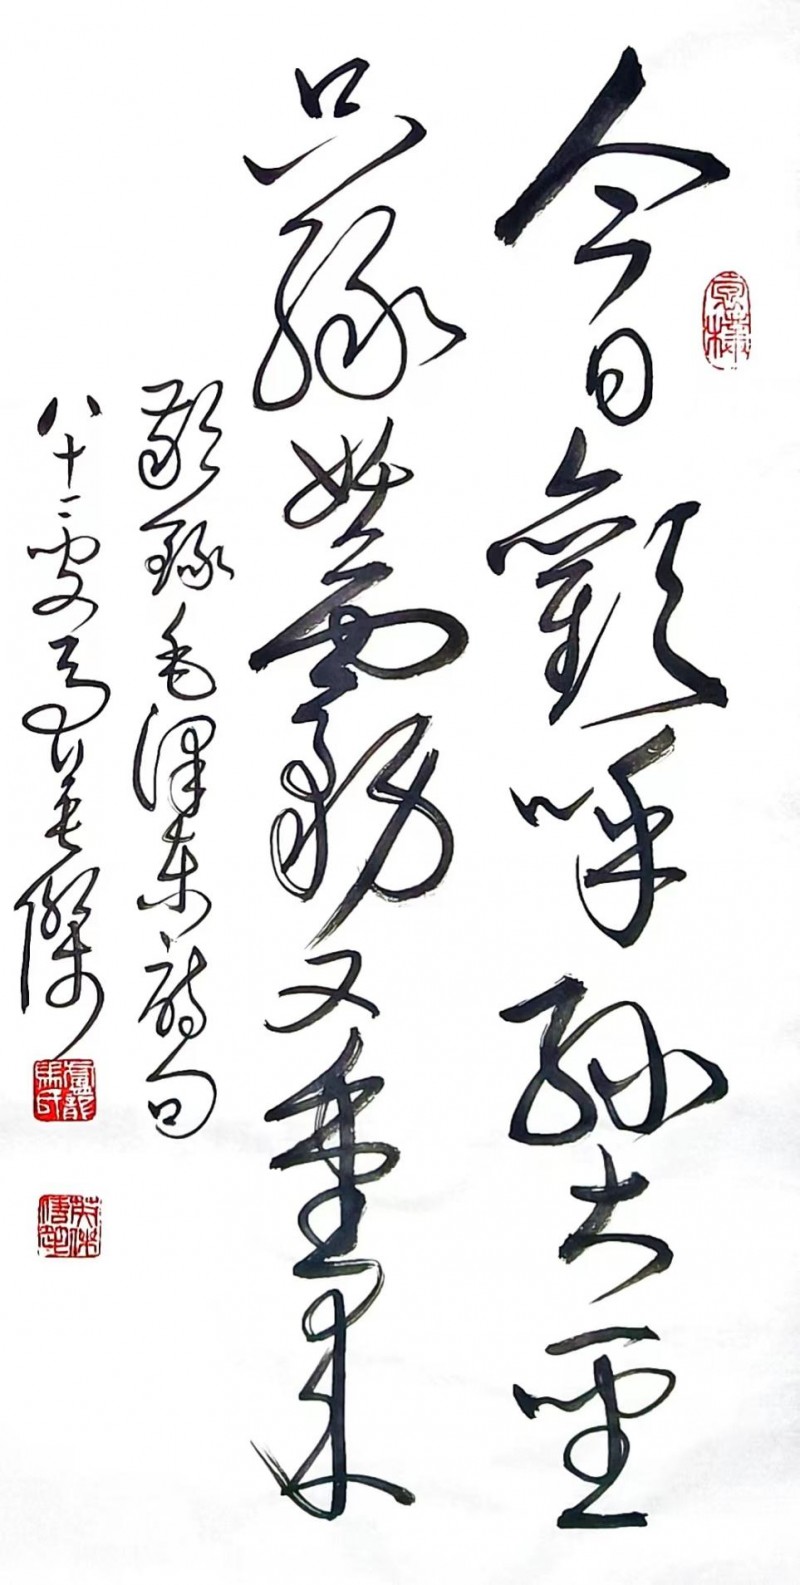 今日歡呼孫大聖
只緣妖霧又重來
敬錄毛澤東詩句
八十二叟馬英傑
盧龍馬氏